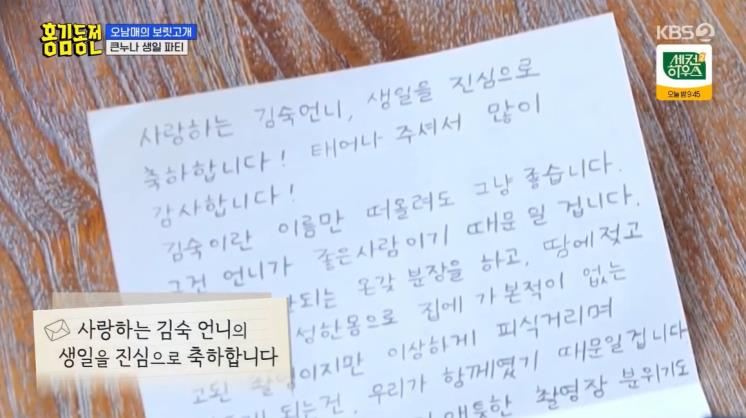 홍김동전
오남매의 보릿고개
큰누나 생일 파티
KBS2
세컨하우스2
오늘 밤 9:45
사랑하는 김숙언니, 생일을 진심으로
축하합니다! 태어나 주셔서 많이
감사합니다!
김숙이란 이름만 떠올려도 그냥 좋습니다.
그건 언니가 좋은사람이기 때문일 겁니다.
되는 온갖 분장을 하고, 땀에젖고
성한몸으로 집에 가본적이 없는
고된 촬영이지만 이상하게 피식거리며
되는건, 우리가 함께였기 때문일겁니다
애틋한 촬영장 분위기도
사랑하는 김숙 언니의
생일을 진심으로 축하합니다